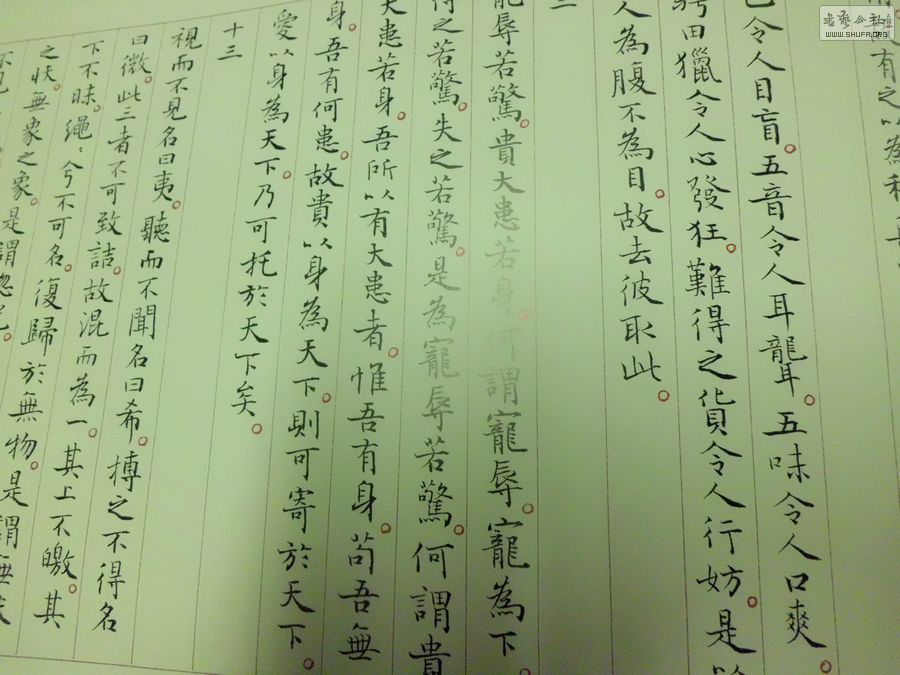 有之以為利
色令人目盲。五音令人耳聾。五味令人口爽。
騁田獵令人心發狂。難得之貨令人行妨。是以
人為腹不為目。故去彼取此。
二
寵辱若驚。貴大患若身。何謂寵辱。寵為下。
得之若驚。失之若驚。是為寵辱若驚。何謂貴
大患若身。吾所以有大患者。惟吾有身。苟吾無
身。吾有何患。故貴以身為天下。則可寄於天下。
愛以身為天下。乃可托於天下矣。
十三
視而不見名曰夷。聽而不聞名曰希。摶之不得名
曰微。此三者不可致詰。故混而為一。其上不皦。其
下不昧。繩〻兮不可名。復歸於無物。是謂無狀
之狀。無象之象。是謂惚恍。
不見
書藝公社
WWW.SHUFA.ORG